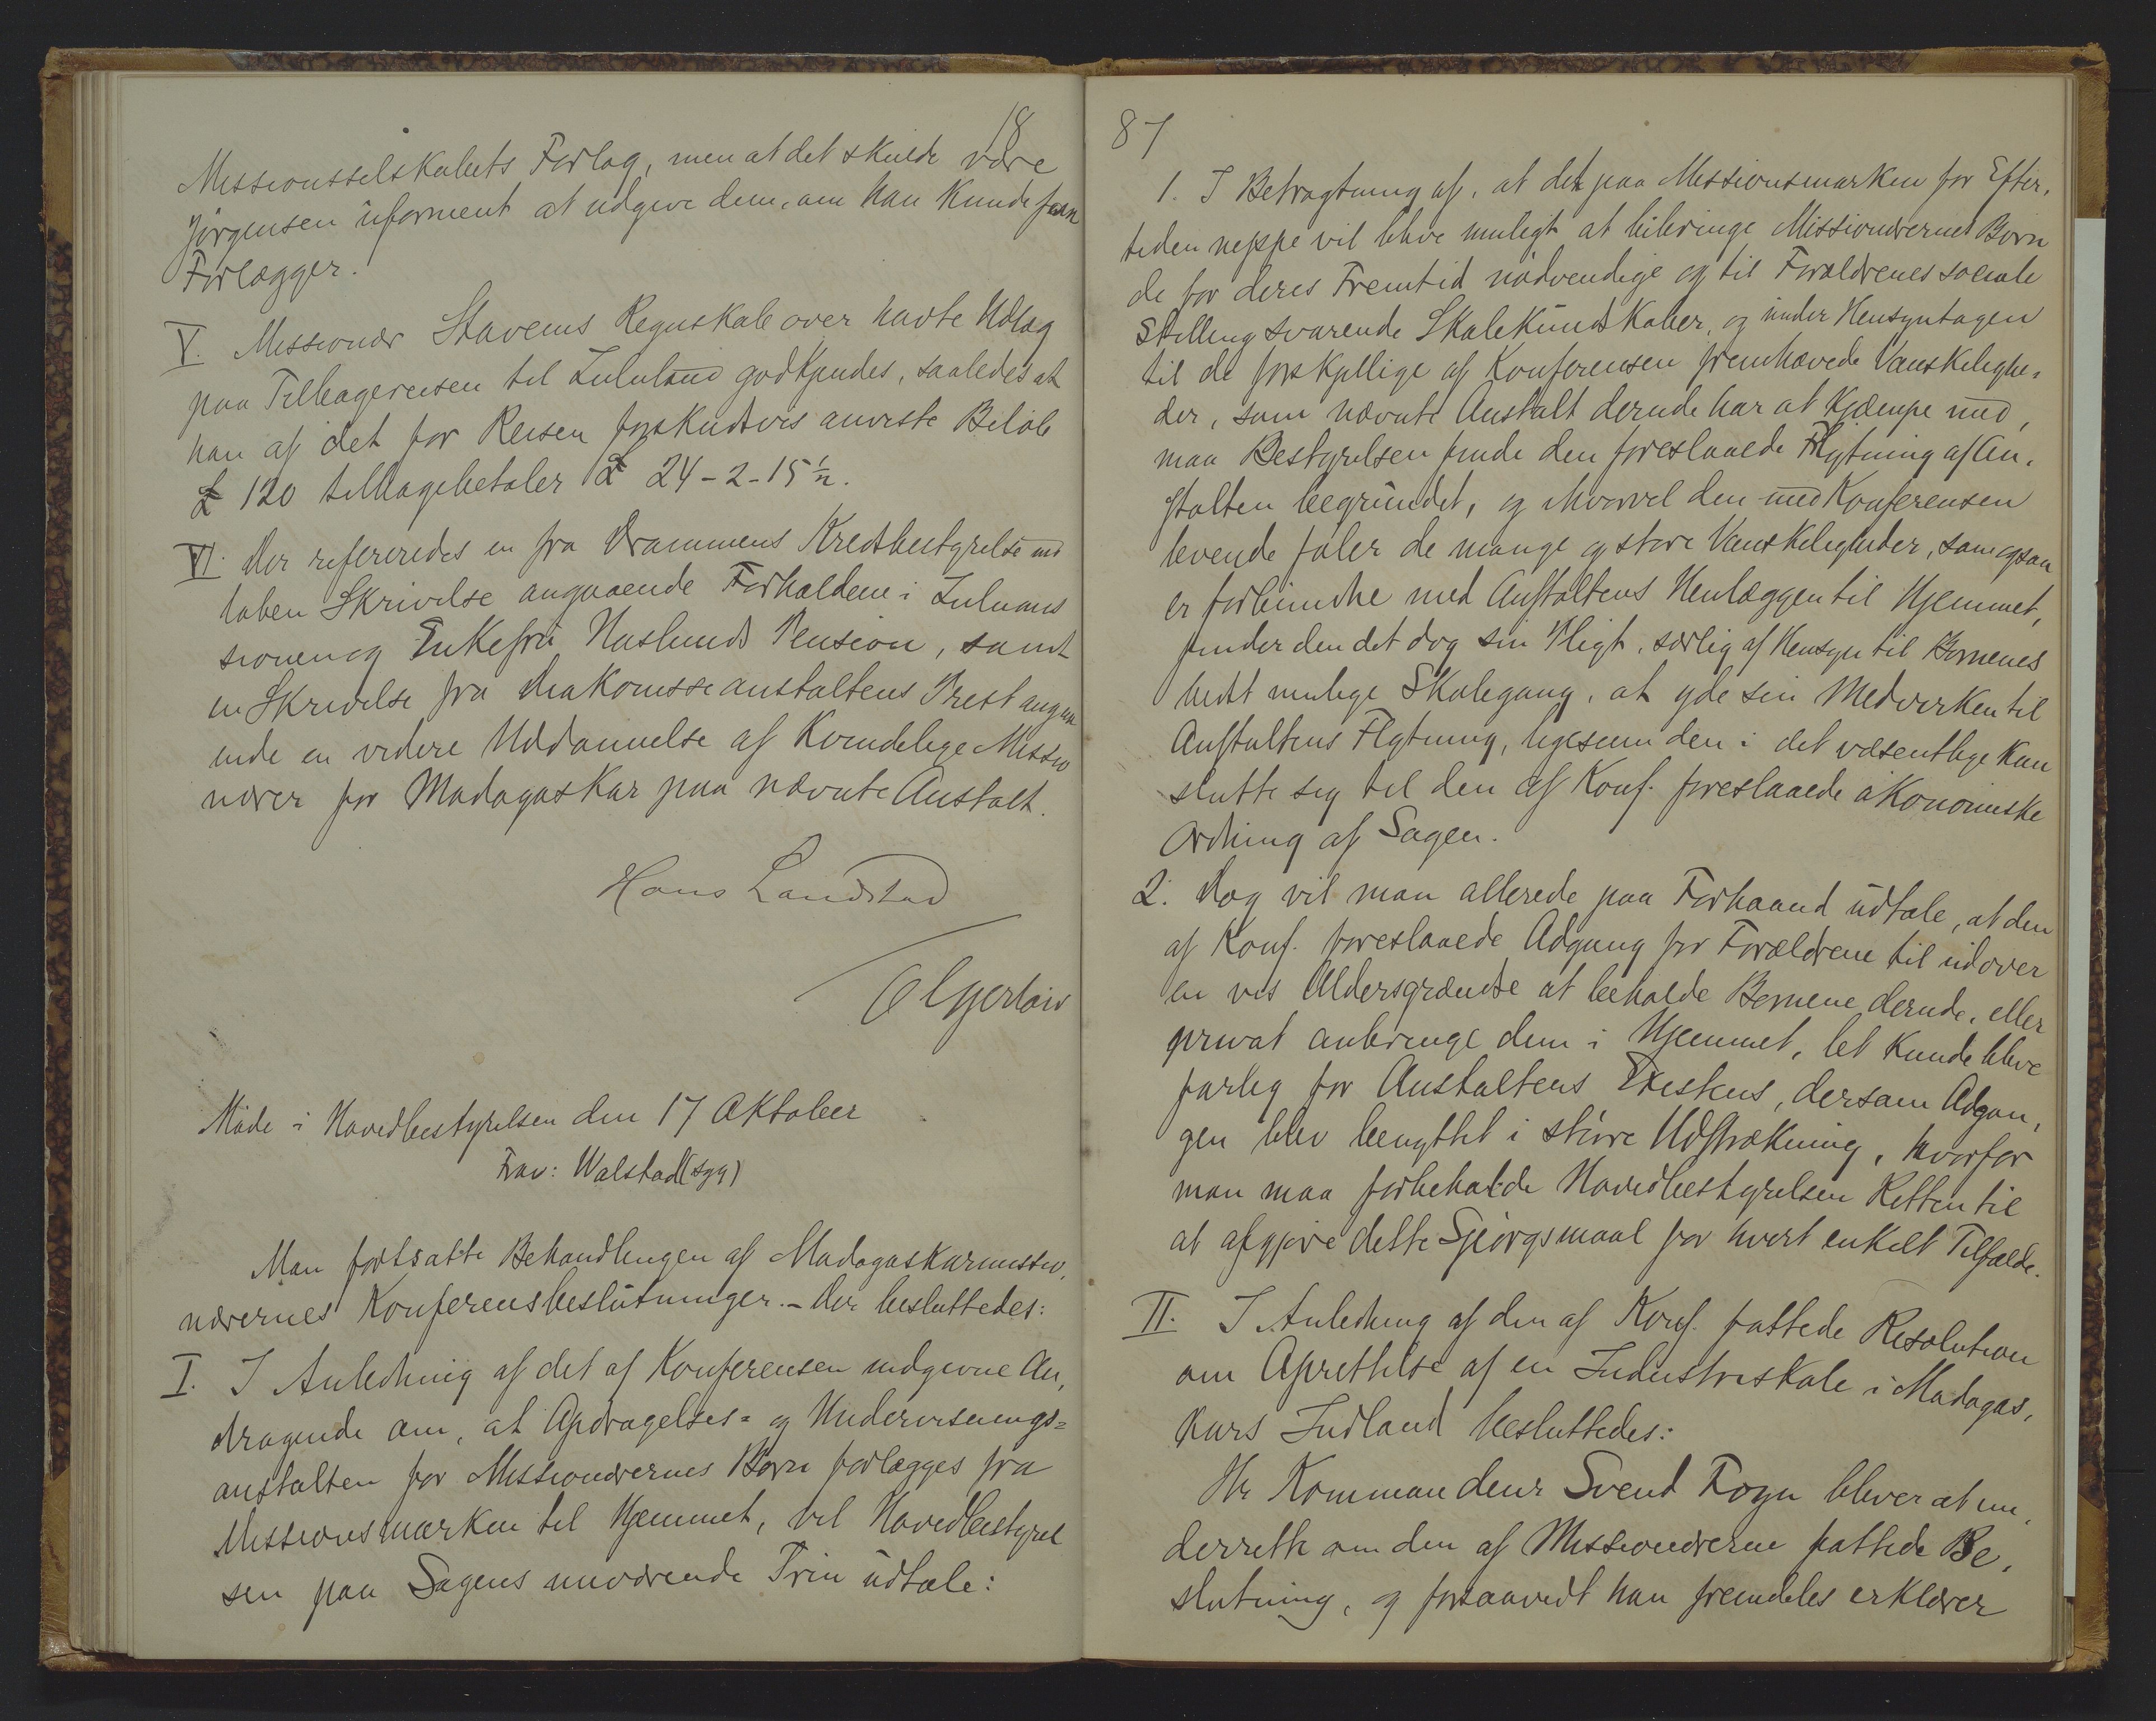 18
Missionsselskabets Forlag, men at det skulde være
Jørgensen uforment at udgive dem, om han kunde faa
Forlægger.
V. Missionær Stavems Regnskab over havte Udlæg
paa Tilbagereisen til Zululand godkjendes, saaledes at
han af det for Reisen forskudsvis anviste Beløb
£ 120 tilbagebetaler £ 24-2-15 ½.
VI. Der refereredes en fra Drammens Kredsbestyrelse ind
løben Skrivelse angaaende Forholdene i Zulumis
sionen og Enkefru Naslunds Pension, samt
en Skrivelse fra Diakonisseanstaltens Prest angaa
ende en videre Uddannelse af Kvindelige Missio
nærer for Madagaskar paa nævnte Anstalt.
Hans Landstad
Møde i Hovedbestyrelsen den 17 Oktober
Frav: Walstad (syg)
Man fortsatte Behandlingen af Madagaskarmissio,
nærernes Konferensbeslutninger. - Der besluttedes:
I. I Anledning af det af Konferensen indgivne An,
dragende om, at Opdragelses= og Undervisnings=
anstalten for Missionærernes Børn forlægges fra
Missionsmarken til Hjemmet, vil Hovedbestyrel
sen paa Sagens nuværende Trin udtale:
87
1. I Betragtning af, at det paa Missionsmarken for Efter,
tiden neppe vil blive muligt at bibringe Missionærernes Børn
de for deres Fremtid nødvendige og til Forældrenes sociale
Stilling svarende Skolekundskaber, og under Hensyntagen
til de forskjellige af Konferensen fremhævede Vanskelighe,
der, som nævnte Anstalt derude har at kjæmpe med,
maa Bestyrelsen finde den foreslaaede Flytning af An,
stalten begrundet, og ihvorvel den med Konferensen
levende føler de mange og store Vanskeligheder, som ogsaa
er forbundne med Anstaltens Henlæggen til Hjemmet,
finder den det dog sin Pligt, særlig af Hensyn til Børnenes
bedst mulige Skolegang, at yde sin Medvirken til
Anstaltens Flytning, ligesom den i det væsentlige kan
slutte sig til den af Konf. foreslaaede økonomiske
Ordning af Sagen.
2. Dog vil man allerede paa Forhaand udtale, at den
af Konf. foreslaaede Adgang for Forældrene til udover
en vis Aldersgrændse at beholde Børnene derude, eller
privat anbringe dem i Hjemmet, let kunde blive
farlig for Anstaltens Existens, dersom Adgan,
gen blev benyttet i større Udstrækning, hvorfor
man maa forbeholde Hovedbestyrelsen Retten til
at afgjøre dette Spørgsmaal for hvert enkelt Tilfælde.
II. I Anledning af den af Konf. fattede Resolution
om Oprettelse af en Industriskole i Madagas,
kars Indland besluttedes:
Hr Kommandeur Svend Foyn bliver at un,
derrette om den af Missionærerne fattede Be,
slutning, og forsaavidt han fremdeles erklærer